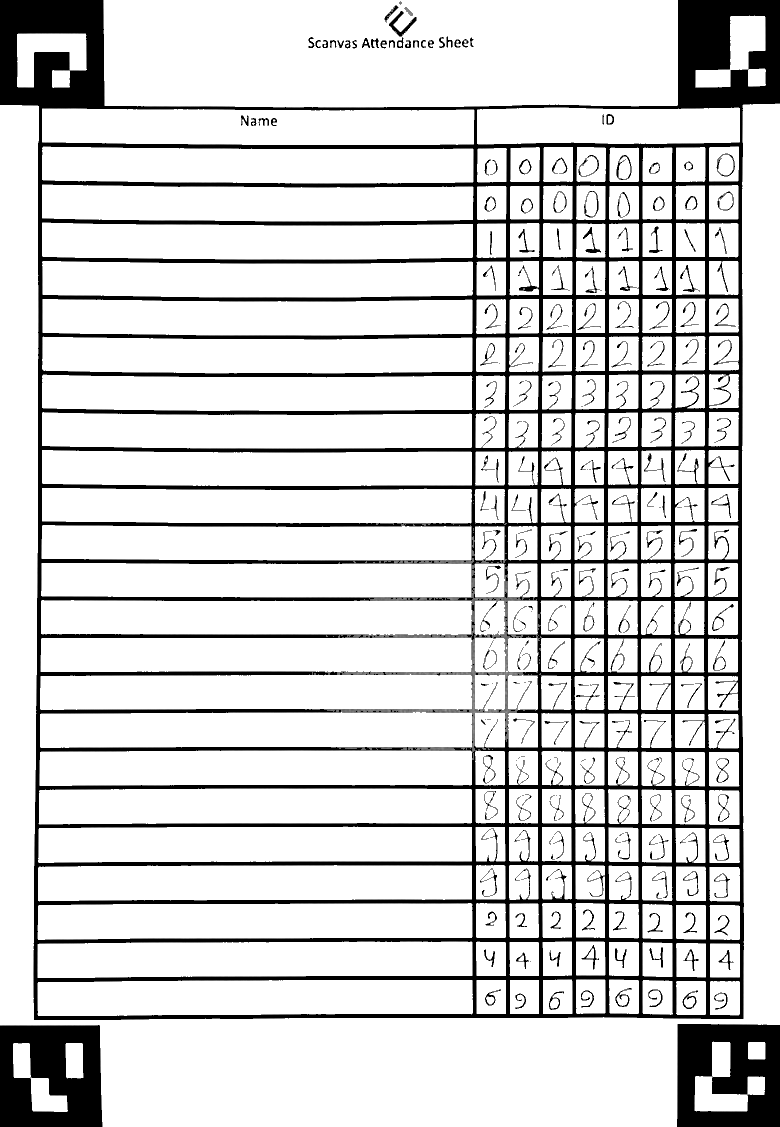 Scanvas Attendance Sheet
Name ID
0 0 0 0 0 0 0 0
0 0 0 0 0 0 0 0
1 1 1 1 1 1 1 1
1 1 1 1 1 1 1 1
2 2 2 2 2 2 2 2
2 2 2 2 2 2 2 2
3 3 3 3 3 3 3 3
3 3 3 3 3 3 3 3
4 4 4 4 4 4 4 4
4 4 4 4 4 4 4 4
5 5 5 5 5 5 5 5
5 5 5 5 5 5 5 5
6 6 6 6 6 6 6 6
6 6 6 6 6 6 6 6
7 7 7 7 7 7 7 7
7 7 7 7 7 7 7 7
8 8 8 8 8 8 8 8
8 8 8 8 8 8 8 8
9 9 9 9 9 9 9 9
9 9 9 9 9 9 9 9
2 2 2 2 2 2 2 2
4 4 4 4 4 4 4 4
6 9 6 9 6 9 6 9